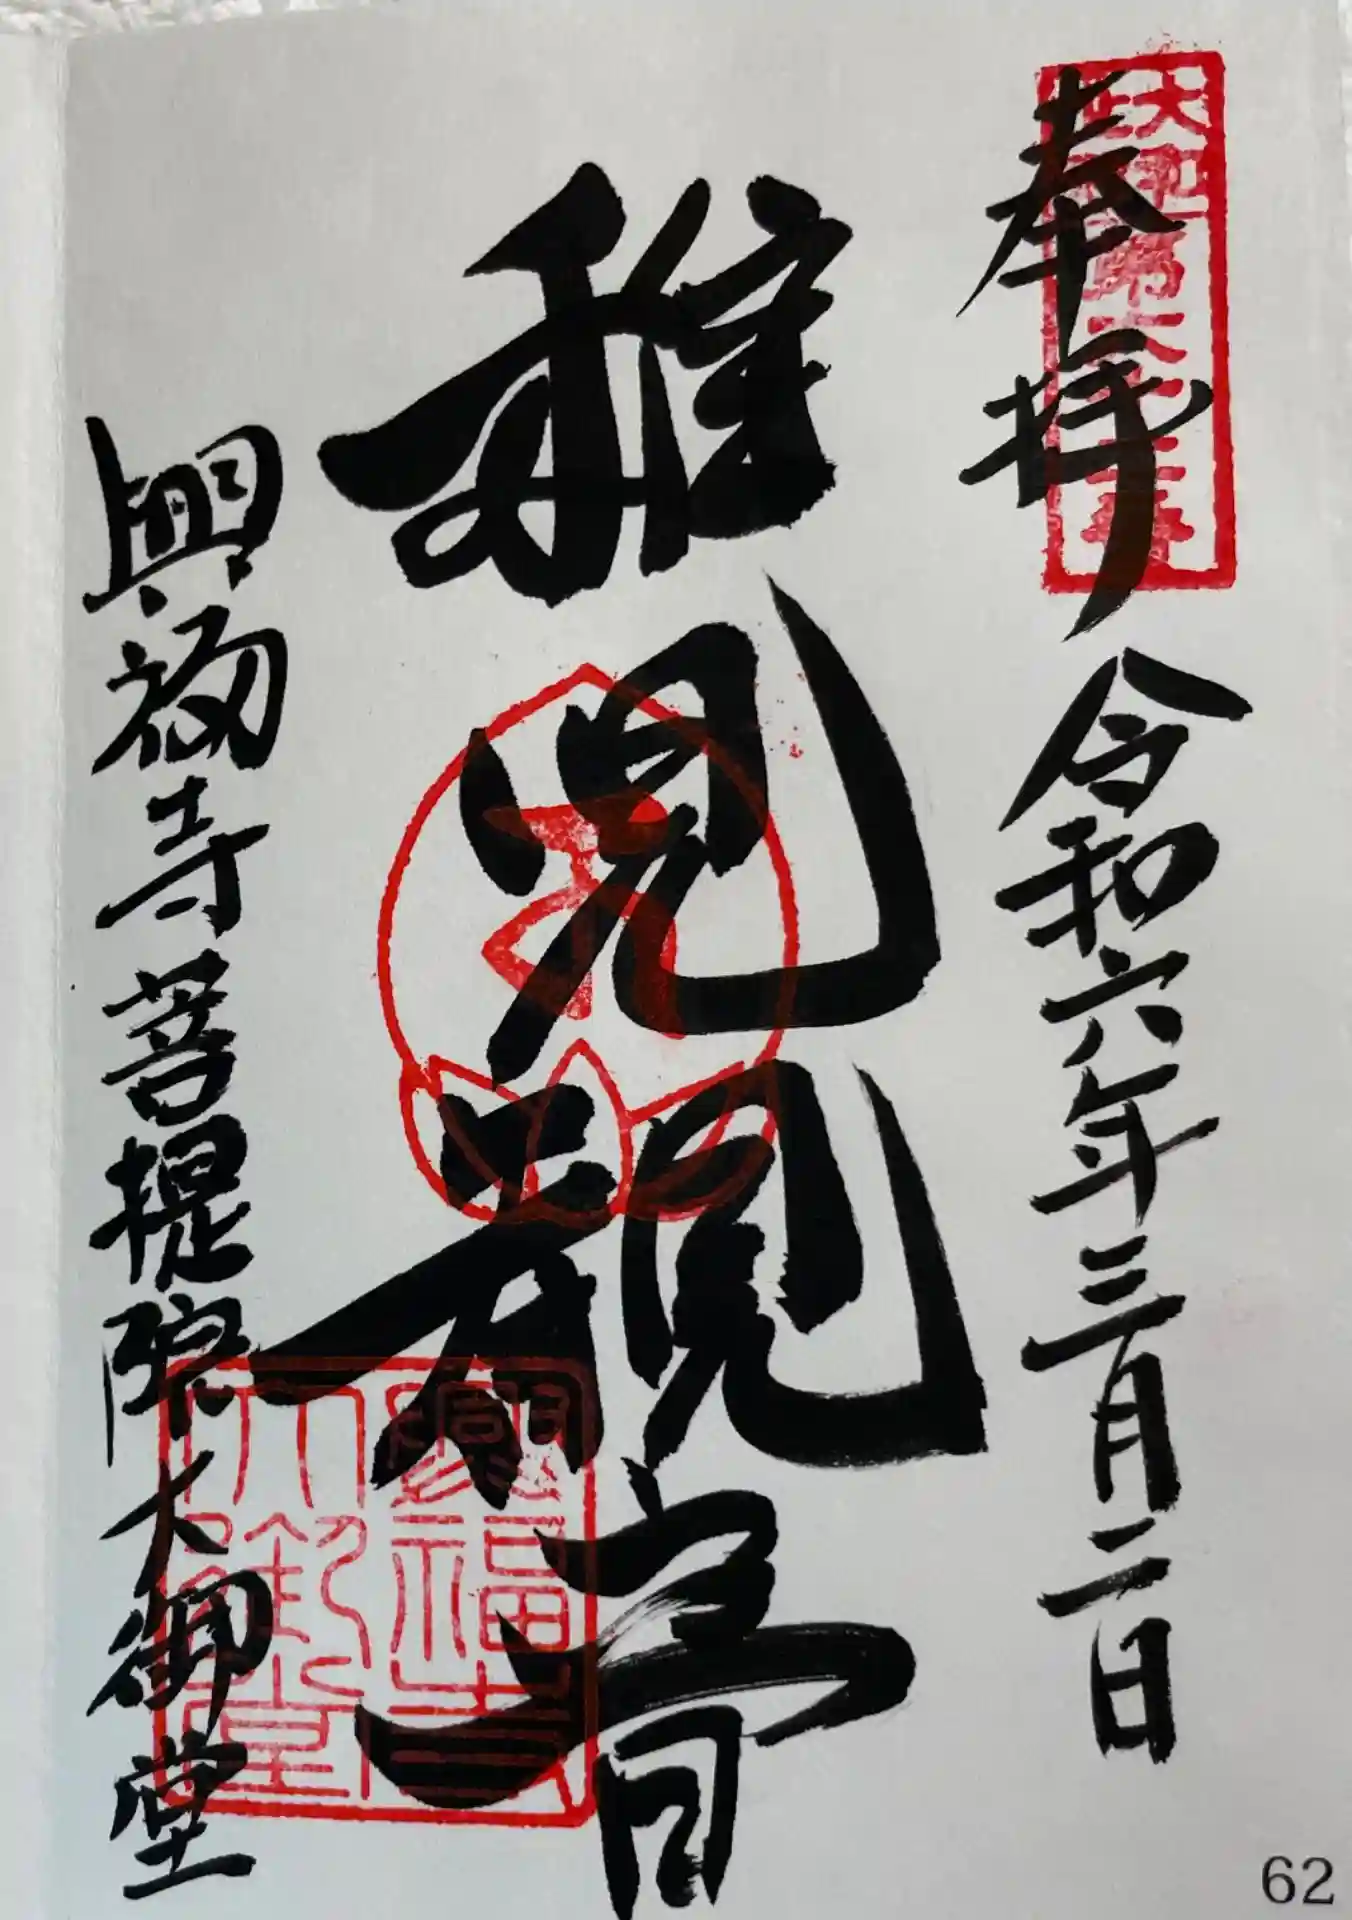 奉拝 令和六年三月二日
稚児観音
興福寺菩提院大御堂
興福寺
大御堂
62